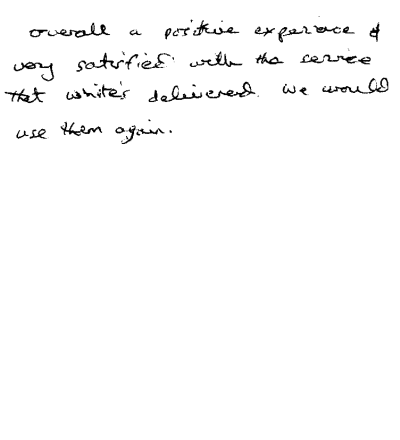 overall a positive experience &
very satisfied with the service
that white's delivered. we would
use them again.